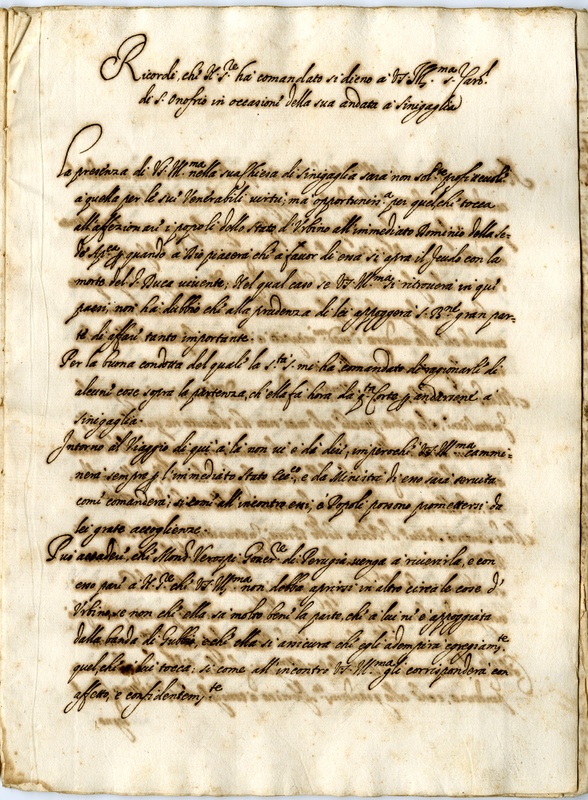 Ricordi, che N. S.re ha comandato si dieno a VS Ill.ma s. Card.l
di S. Onofrio in occasione della sua andata a Sinigaglia
La presenza di VS Ill.ma nella sua Chiesa di Sinigaglia sarà non sol.te profittevole
a quella per le sue Venerabili virtù; ma opportuniss.a per quel che tocca
all'affezionare i popoli dello Stato d'Urbino all'immediato Dominio della Se-
de Ap.ca quando a Dio piacerà che a favor di essa si apra il feudo con la
morte del S. Duca vivente; Nel qual caso se VS Ill.ma si ritroverà in que'
paesi, non ha dubbio che alla prudenza di lei appoggerà S. B.ne gran par-
te di affari tanto importante.
Per la buona condotta del quale la S.tà S. mi ha comandato di ragionarle di
alcune cose sopra la partenza, ch'ella fa hora da q.ta Corte p andarsene a
Sinigaglia.
Intorno al Viaggio di qui a là non vi è da dir, imperochè VS Ill.ma cammi-
nerà sempre p l'immediato Stato Ecc.co, e da Ministri di esso sarà servita
come comanderà; si come all'incontro essi, e Popoli possono promettersi da
lei grate accoglienze.
Può accadere, che Mons.r Verospi Gover.re di Perugia venga a riverirla, e con
esso pare a N. S.re che VS Ill.ma non debba aprirsi in altro circa le cose d'
Urbino, se non che ella sa molto bene la parte, che a lui n'è appoggiata
dalla banda di Gubbio, e che ella si assicura che egli adempirà egregiam.te
quel che a lui tocca; si come all'incontro VS Ill.ma gli corrisponderà con
affetto, e confidentem.te